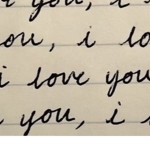 e you, i
you, i lo
i love you
you, i